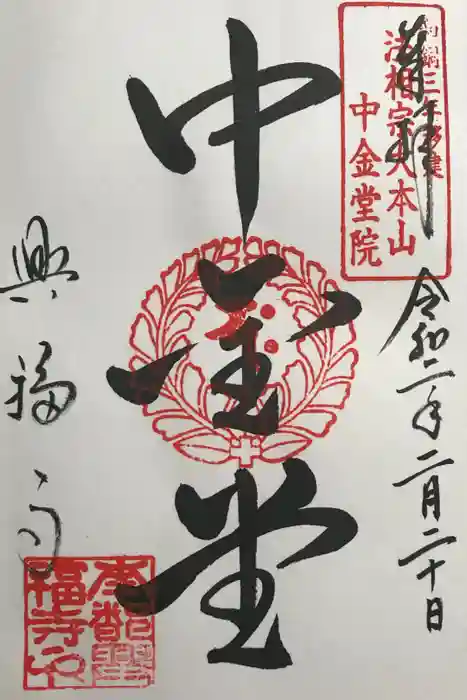 奉拝
和銅三年移建
法相宗大本山
中金堂院
令和二年二月二十日
中金堂
興福寺
南都興福寺印